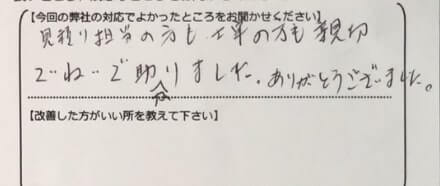 【今回の弊社の対応でよかったところをお聞かせください】
見積り担当の方も工事の方も親切
でねいで助かりました。ありがとうございました。
【改善した方がいい所を教えて下さい】